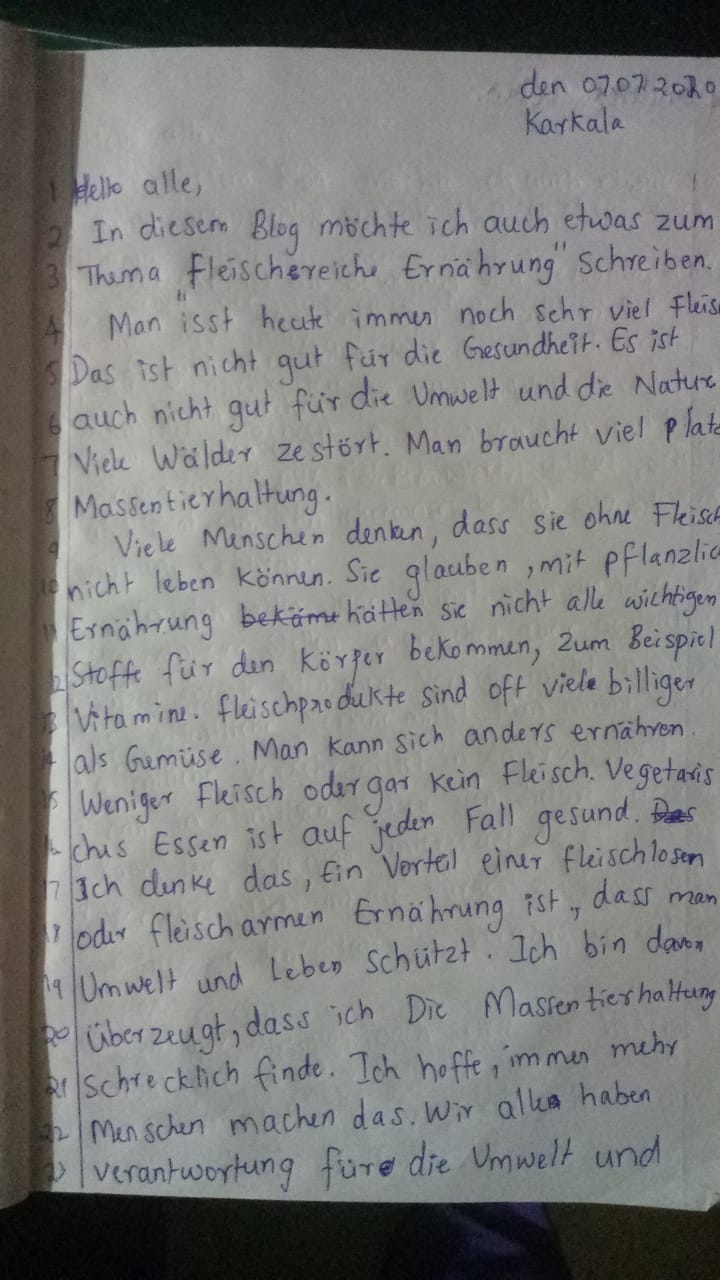 den 07.07.2020
Karkala
1 Hello alle,
2 In diesem Blog möchte ich auch etwas zum
3 Thema „Fleischereiche Ernährung" Schreiben.
4 Man isst heute immer noch sehr viel Fleis
5 Das ist nicht gut für die Gesundheit. Es ist
6 auch nicht gut für die Umwelt und die Natur
7 Viele Wälder zestört. Man braucht viel Plat
8 Massentierhaltung.
9 Viele Menschen denken, dass sie ohne Fleisch
10 nicht leben können. Sie glauben, mit pflanzlic
11 Ernährung hätten sie nicht alle wichtigen
12 Stoffe für den Körper bekommen, Zum Beispiel
13 Vitamine. Fleischprodukte sind off viele billiger
14 als Gemüse. Man kann sich anders ernähren.
15 Weniger Fleisch oder gar kein Fleisch. Vegetaris
16 ches Essen ist auf jeden Fall gesund. Das
17 Ich denke das, Ein Vorteil einer fleischlosen
18 oder fleischarmen Ernährung ist, dass man
19 Umwelt und Leben schützt. Ich bin davon
20 überzeugt, dass ich Die Massentierhaltung
21 schrecklich finde. Ich hoffe, immer mehr
22 Menschen machen das. Wir alle haben
23 verantwortung für die Umwelt und